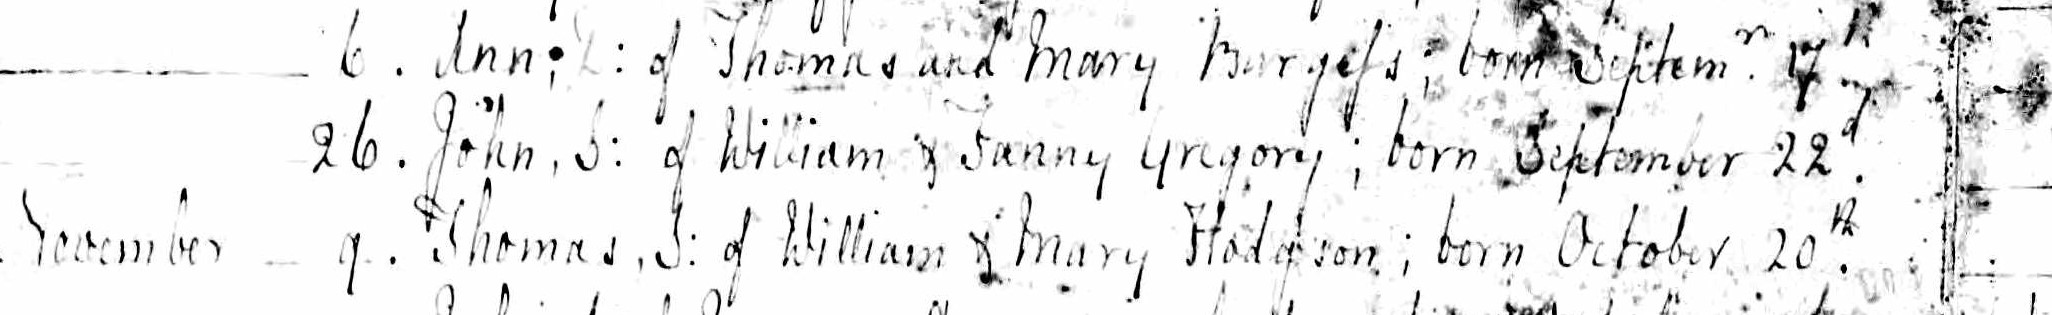 6. Ann; D: of Thomas and Mary Burgeſs; born Septemr. 17th.
26. John, S: of William & Fanny Gregory; born September 22d.
November 9. Thomas, S: of William & Mary Hodgson; born October 20th.